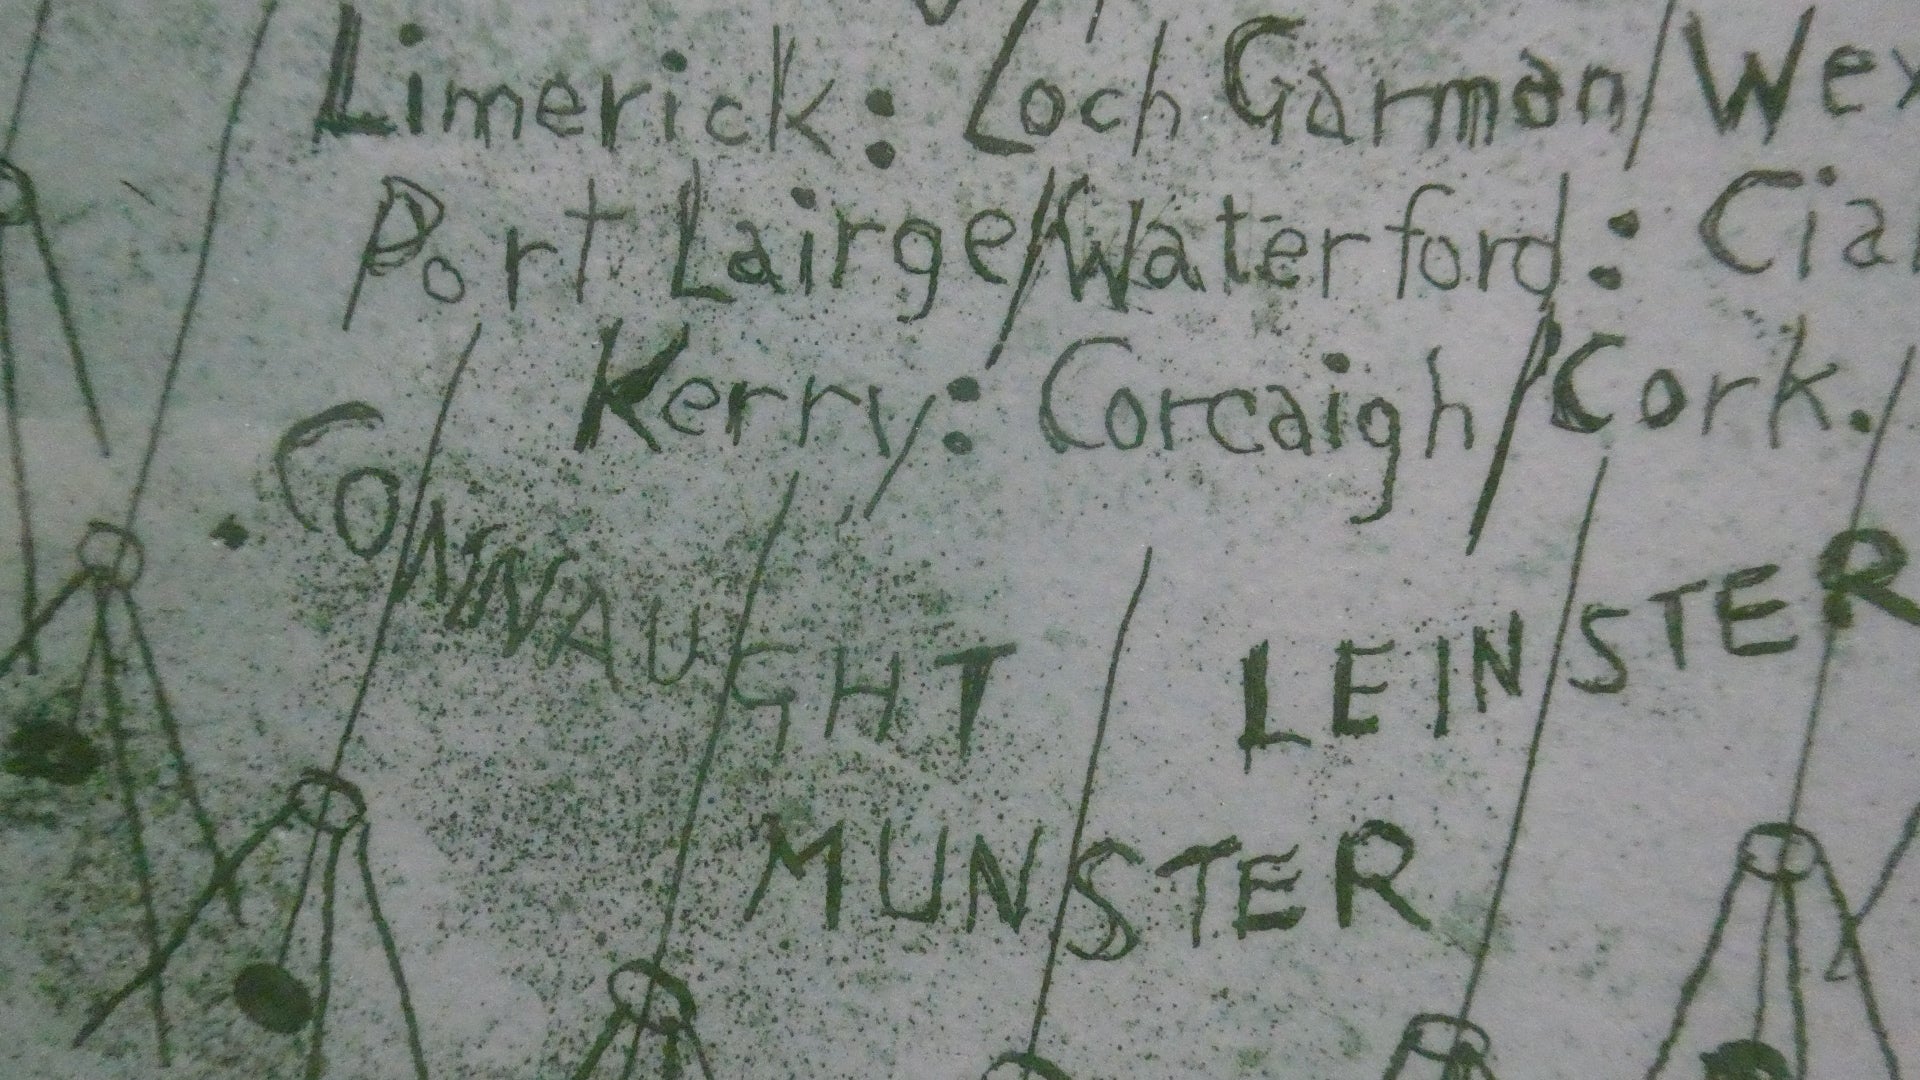 Limerick: Loch Garman/Wex
Port Lairge/Waterford: Ciar
Kerry: Corcaigh/Cork.
CONNAUGHT LEINSTER
MUNSTER